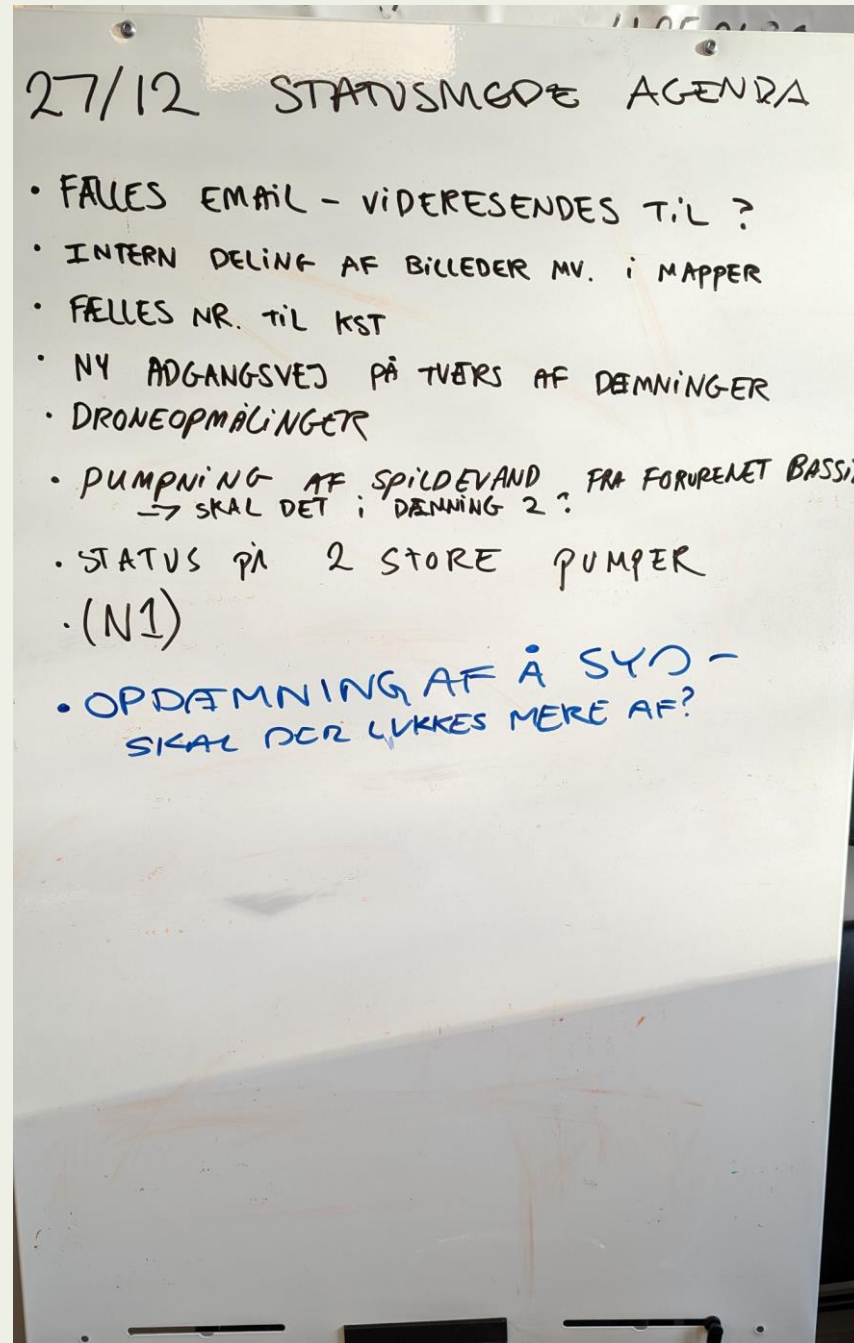 27/12 STATUSMØDE AGENDA
• FÆLLES EMAIL - VIDERESENDES TIL ?
• INTERN DELING AF BILLEDER MV. i MAPPER
• FÆLLES NR. TIL KST
• NY ADGANGSVEJ PÅ TVÆRS AF DÆMNINGER
• DRONEOPMÅLINGER
• PUMPNING AF SPILDEVAND FRA FORURENET BASSI
→ SKAL DET i DÆMNING 2 ?
• STATUS PÅ 2 STORE PUMPER
• (N1)
• OPDÆMNING AF Å SYD -
SKAL DER LUKKES MERE AF?